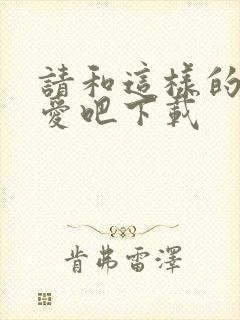 請和這樣的
愛吧下載
肯弗雷澤